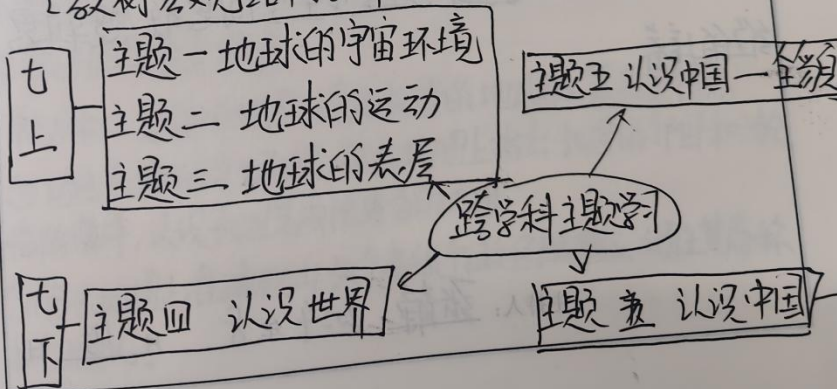 七上
主题一 地球的宇宙环境
主题二 地球的运动
主题三 地球的表层
主题五 认识中国一全貌
跨学科主题学习
七下
主题四 认识世界
主题 五 认识中国